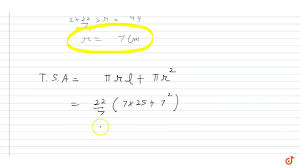 2×22/7 × r = 44
r = 7 cm
T.S.A = πrl + πr²
= 22/7 (7×25+7²)